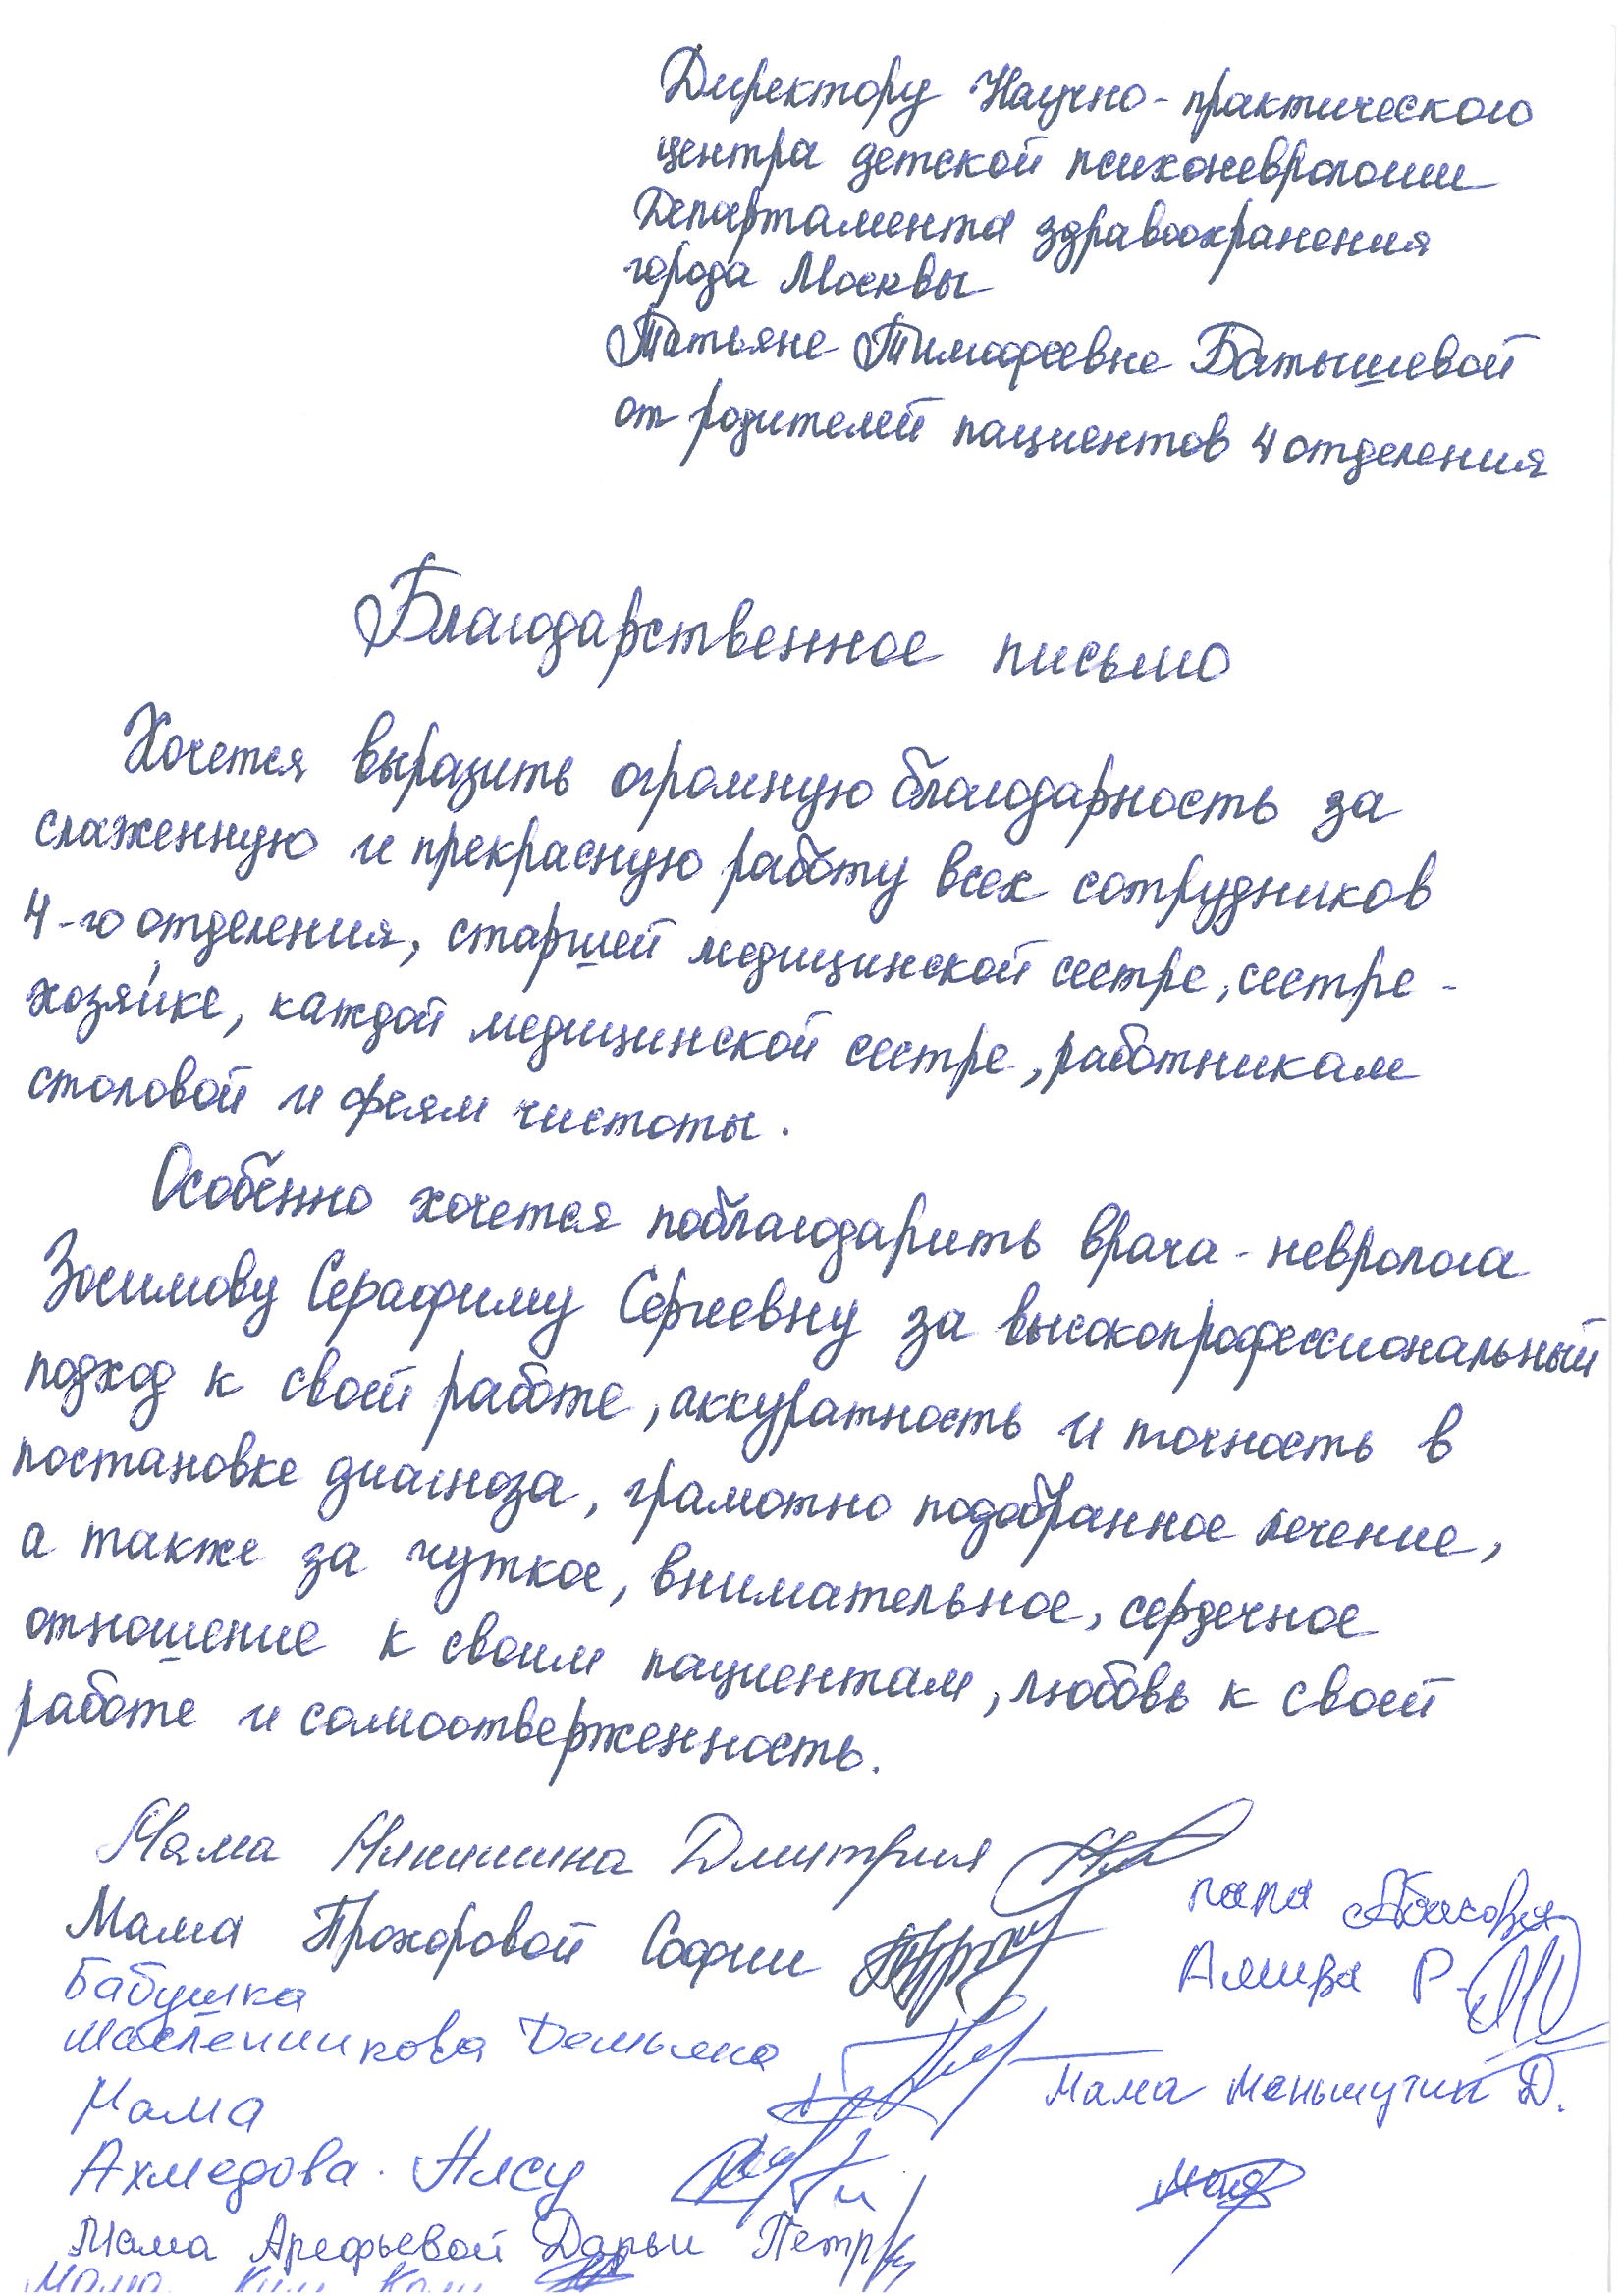 Директору Научно-практического
центра детской психоневрологии
Департамента здравоохранения
города Москвы
Татьяне Тимофеевне Батышевой
от родителей пациентов 4 отделения
Благодарственное письмо
Хочется выразить огромную благодарность за
слаженную и прекрасную работу всех сотрудников
4-го отделения, старшей медицинской сестре, сестре-
хозяйке, каждой медицинской сестре, работникам
столовой и феям чистоты.
Особенно хочется поблагодарить врача-невролога
Зосимову Серафиму Сергеевну за высокопрофессиональный
подход к своей работе, аккуратность и точность в
постановке диагноза, грамотно подобранное лечение,
а также за чуткое, внимательное, сердечное
отношение к своим пациентам, любовь к своей
работе и самоотверженность.
Мама Дмитрия
Мама Прохоровой Софии
папа
Амира Р.
Бабушка
Масленникова Демьяна
Мама Меньшутин Д.
Мама
Ахмедова Алсу
Мама Арефьевой Дарьи
Мама